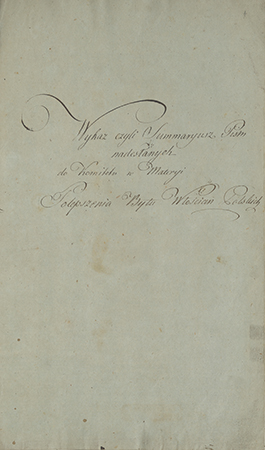 Wykaz czyli Summaryusz Pism
nadesłanych
do Komitetu w Materyi
Polepszenia Bytu Włościan Polskich